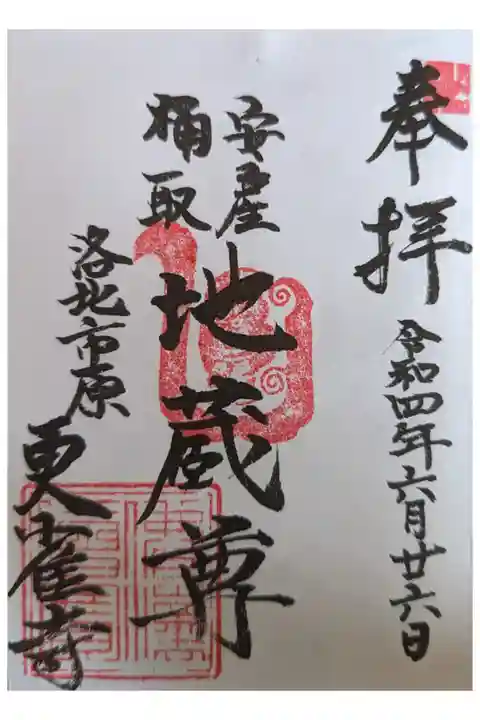 奉拝
令和四年六月廿六日
安産
桶取
地蔵尊
洛北市原
更雀寺